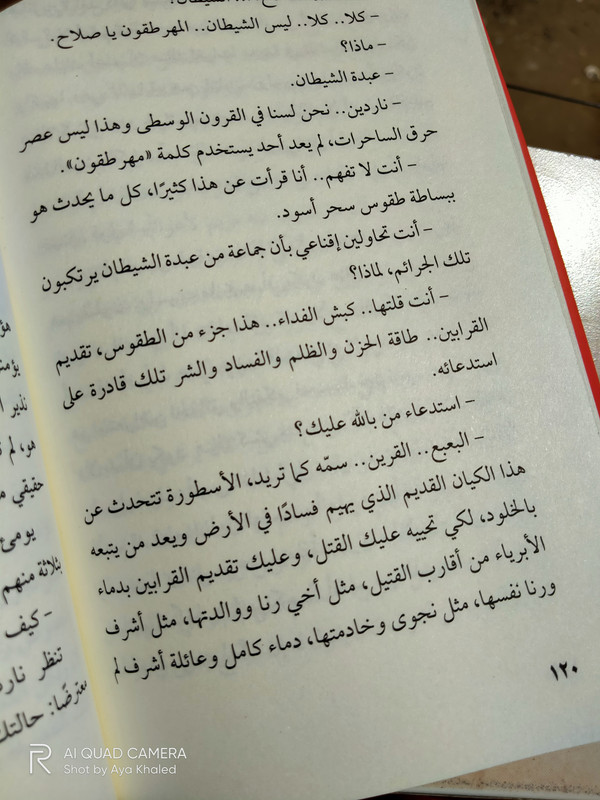 - كلا.. كلا.. ليس الشيطان.. المهرطقون يا صلاح.
- ماذا؟
- عبدة الشيطان.
- ناردين.. نحن لسنا في القرون الوسطى وهذا ليس عصر
حرق الساحرات، لم يعد أحد يستخدم كلمة «مهرطقون».
- أنت لا تفهم.. أنا قرأت عن هذا كثيرًا، كل ما يحدث هو
ببساطة طقوس سحر أسود.
- أنت تحاولين إقناعي بأن جماعة من عبدة الشيطان يرتكبون
تلك الجرائم، لماذا؟
- أنت قلتها.. كبش الفداء.. هذا جزء من الطقوس، تقديم
القرابين.. طاقة الحزن والظلم والفساد والشر تلك قادرة على
استدعائه.
- استدعاء من بالله عليك؟
- البعبع.. القرين.. سمّه كما تريد، الأسطورة تتحدث عن
هذا الكيان القديم الذي يهيم فسادًا في الأرض ويعد من يتبعه
بالخلود، لكي تحييه عليك القتل، وعليك تقديم القرابين بدماء
الأبرياء من أقارب القتيل، مثل أخي رنا ووالدتها، مثل أشرف
ورنا نفسها، مثل نجوى وخادمتها، دماء كامل وعائلة أشرف لم
١٢٠
نذير
هو، لم
حقيقي
يومئ
بثلاثة منهم
- كيف
تنظر
معترضًا: حالتك
AI QUAD CAMERA
Shot by Aya Khaled